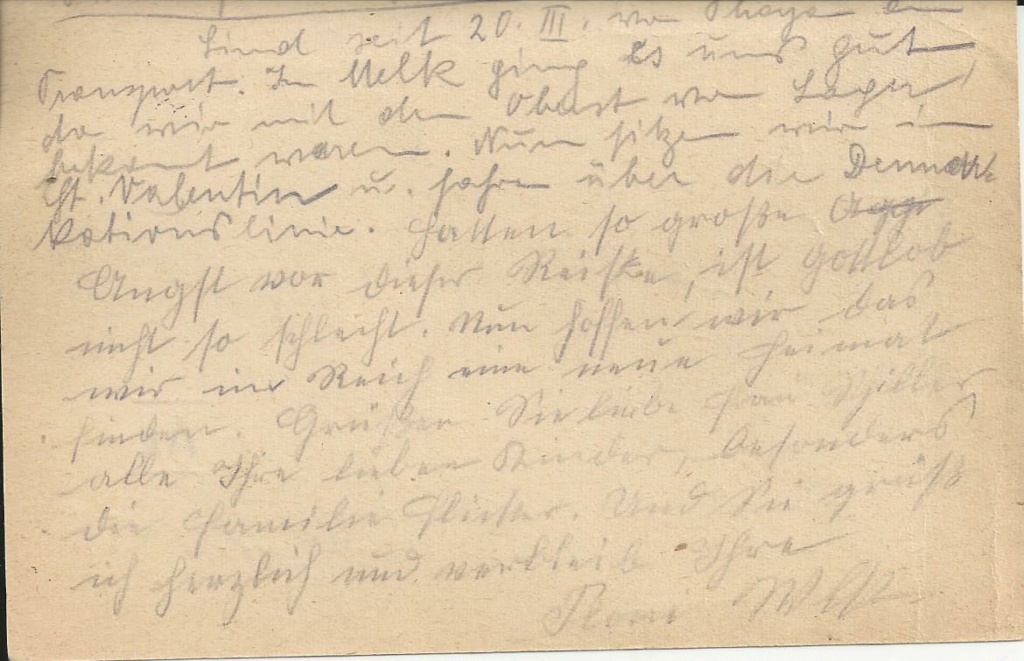 Sind seit 20. III. von Thaya am
Transport. In Melk ging es uns gut,
da wir mit dem Oberst vom Lager
bekannt waren. Nun sitzen wir in
St. Valentin u. fahren über die Demar-
kationslinie. Hatten so große
Angst vor dieser Reise, ist Gottlob
nicht so schlecht. Nun hoffen wir das
wir im Reich eine neue Heimat
finden. Grüßen Sie liebe Frau Schiller
alle Ihre lieben Kinder, besonders
die Familie. Und Sie grüß
ich herzlich und verbleib Ihre